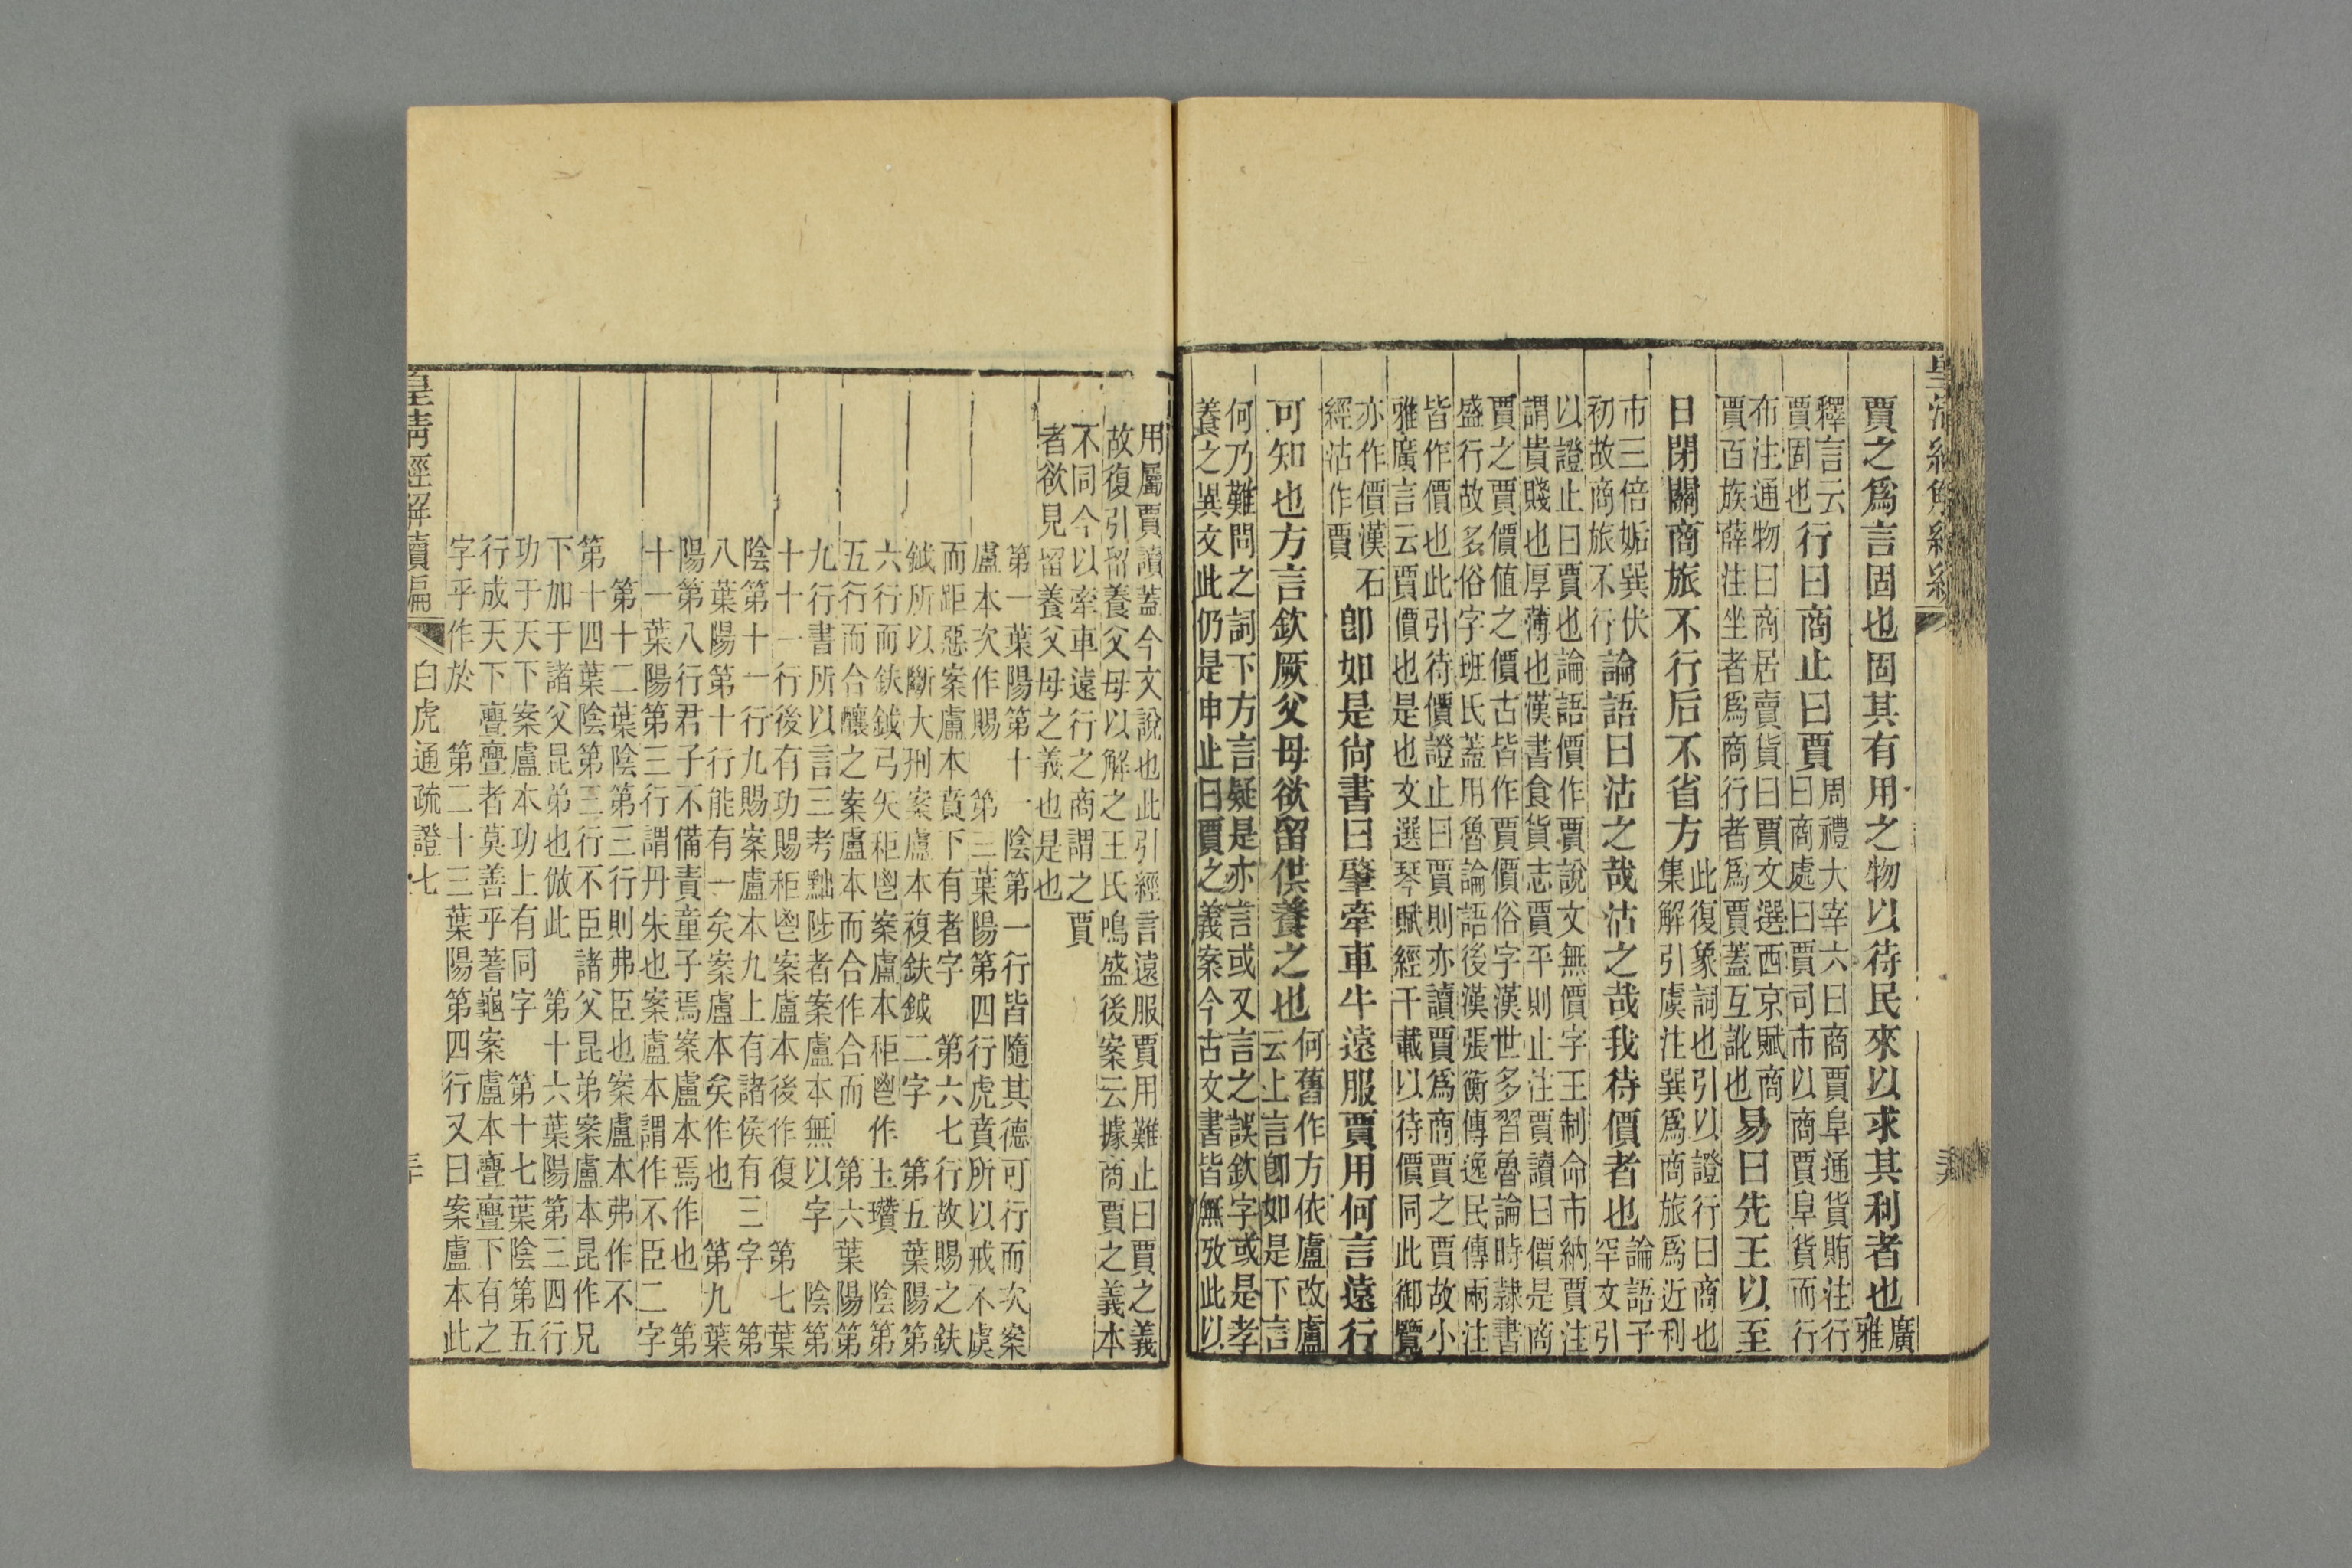 皇清經解續經
賈之爲言固也固其有用之物以待民來以求其利者也廣
雅
釋言云
賈固也行曰商止曰賈周禮大宰六曰商賈阜通貨賄注行
曰商處曰賈司市以商賈阜貨而行
布注通物曰商居賣貨曰賈文選西京賦商
賈百族薛注坐者爲商行者爲賈蓋互訛也易曰先王以至
日閉關商旅不行后不省方此復象詞也引以證行曰商也
集解引虞注巽爲商旅爲近利
市三倍姤巽伏
初故商旅不行論語曰沽之哉沽之哉我待價者也論語子
罕文引
以證止曰賈也論語價作賈說文無價字王制命市納賈注
謂貴賤也厚薄也漢書食貨志賈平則止注賈讀曰價是商
賈之賈價值之價古皆作賈價俗字漢世多習魯論時隸書
盛行故多俗字班氏蓋用魯論語後漢張衡傳逸民傳兩注
皆作價也此引待價證止曰賈則亦讀賈爲商賈之賈故小
雅廣言云賈價也是也文選琴賦經千載以待價同此御覽
亦作價漢石
經沽作賈卽如是尙書曰肇牽車牛遠服賈用何言遠行
可知也方言欽厥父母欲留供養之也何舊作方依盧改盧
云上言卽如是下言
何乃難問之詞下方言疑是亦言或又言之誤欽字或是孝
養之異文此仍是申止曰賈之義案今古文書皆無攷此以
用屬賈讀蓋今文說也此引經言遠服賈用難止曰賈之義
故復引留養父母以解之王氏鳴盛後案云據商賈之義本
不同今以牽車遠行之商謂之賈
者欲見留養父母之義也是也
第一葉陽第十一陰第一行皆隨其德可行而次案
盧本次作賜　第三葉陽第四行虎賁所以戒不虞
而距惡案盧本賁下有者字　第六七行故賜之鈇
鉞所以斷大刑案盧本複鈇鉞二字　第五葉陽第
六行而鈇鉞弓矢秬鬯案盧本秬鬯作玉瓚　陰第
五行而合釀之案盧本而合作合而　第六葉陽第
九行書所以言三考黜陟者案盧本無以字　陰第
十十一行後有功賜秬鬯案盧本後作復　第七葉
陰第十一行九賜案盧本九上有諸侯有三字　第
八葉陽第十行能有一矣案盧本矣作也　第九葉
陽第八行君子不備責童子焉案盧本焉作也　第
十一葉陽第三行謂丹朱也案盧本謂作不臣二字
第十二葉陰第三行則弗臣也案盧本弗作不
第十四葉陰第三行不臣諸父昆弟案盧本昆作兄
下加于諸父昆弟也倣此　第十六葉陽第三四行
功于天下案盧本功上有同字　第十七葉陰第五
行成天下亹亹者莫善乎蓍龜案盧本亹亹下有之
字乎作於　第二十三葉陽第四行又曰案盧本此
皇清經解續編　白虎通疏證七